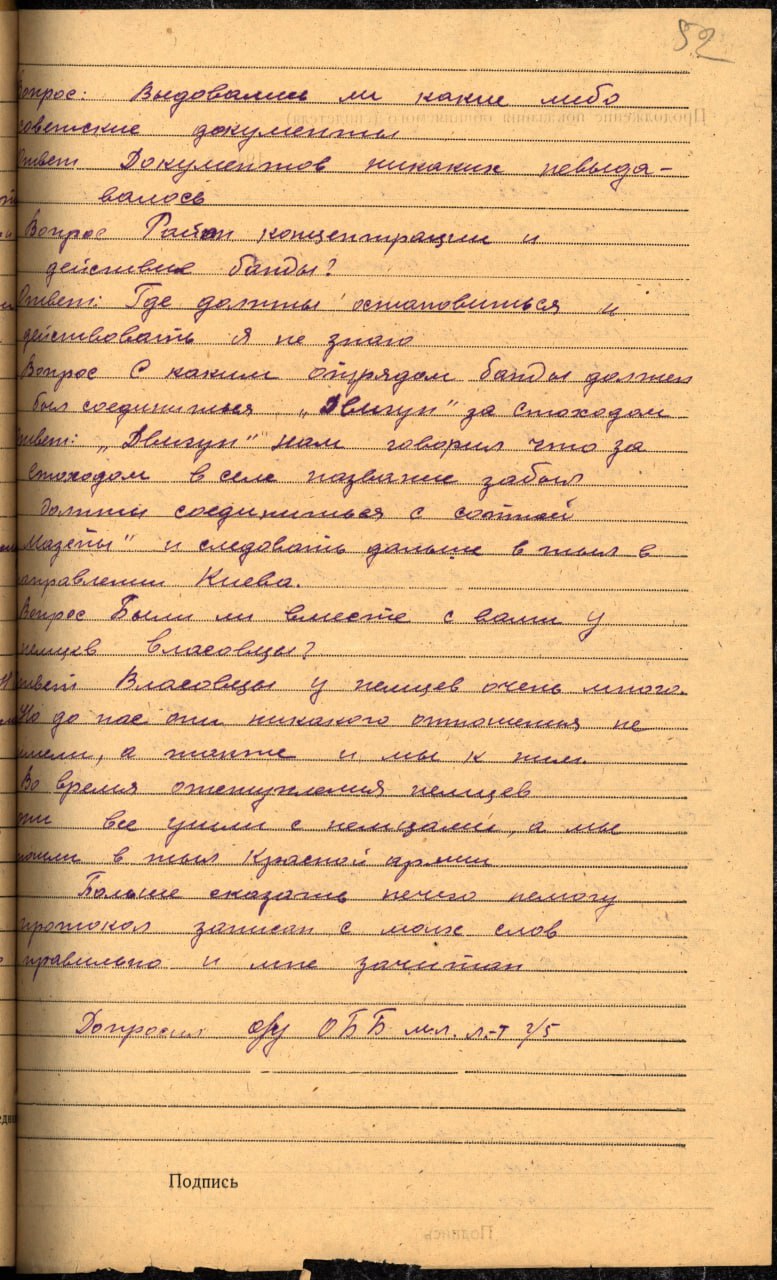 52
Вопрос: Выдовались ли какие либо
советские документы
Ответ Документов никаких невыда-
валось
Вопрос Район концентрации и
действие банды?
Ответ: Где должны остановиться и
действовать я не знаю
Вопрос С каким отрядом банды должен
был соединиться „Двигун" за Стоходом
Ответ: „Двигун" нам говорил что за
Стоходом в селе название забыл
должны соединиться с сотней
„Мазепы" и следовать дальше в тыл в
направлении Киева.
Вопрос Были ли вместе с вами у
немцев власовцы?
Ответ Власовцы у немцев очень много.
Но до нас они никакого отношения не
имели, а также и мы к ним.
Во время отступления немцев
они все ушли с немцами, а мы
пошли в тыл красной армии
Больше сказать нечего немогу
протокол записан с моих слов
правильно и мне зачитан
Допросил о/у ОББ мл. л-т г/б
Подпись